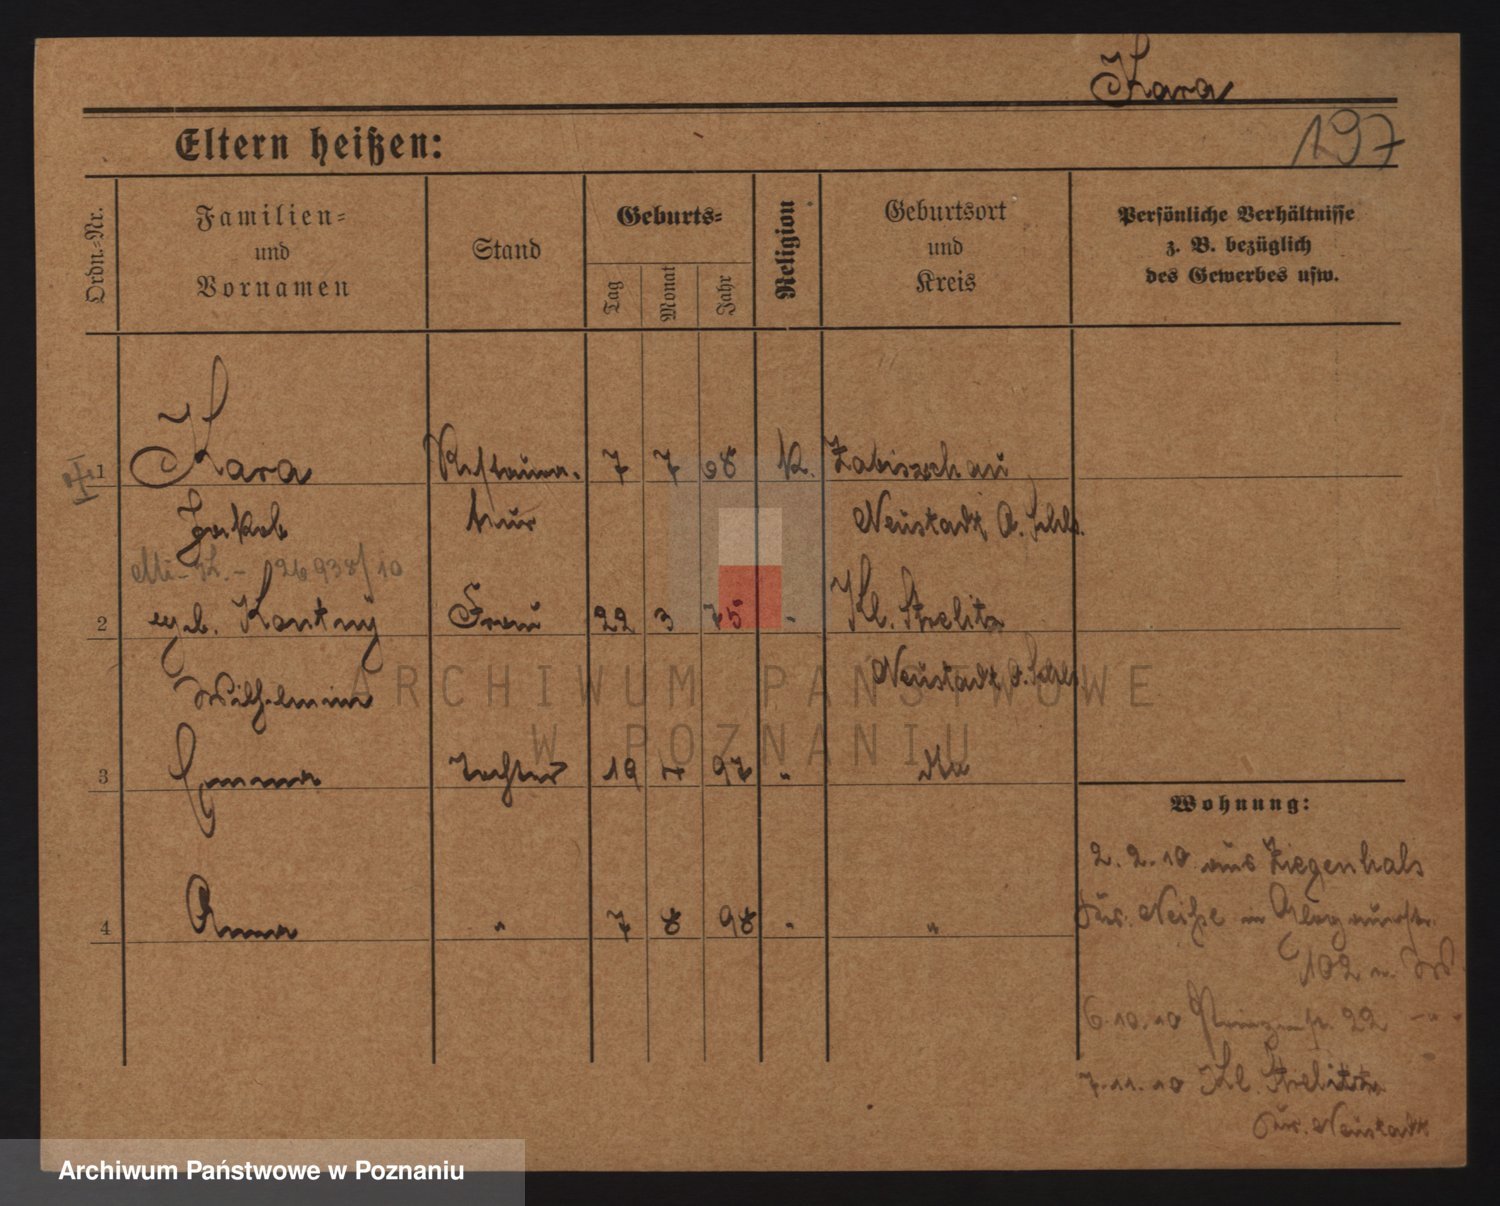 Kara
197
Eltern heißen:
Ordn.-Nr.
Familien-
und
Vornamen
Stand
Geburts-
Tag
Monat
Jahr
Religion
Geburtsort
und
Kreis
Persönliche Verhältnisse
z. B. bezüglich
des Gewerbes usw.
1 Kara Restaura- 7 7 68 K. Zabierzchau
Jakob teur Neustadt O. Schls.
26938/10
2 geb. Kontny Frau 22 3 75 " Kl. Strelitz
Wilhelmine Neustadt O. Schls.
3 Emma Tochter 19 4 97 " dto
4 Anna " 7 8 98 " "
Wohnung:
2.2.10 aus Ziegenhals
Kr. Neiße in Glogauerstr.
102 n. W
6.10.10 Prinzenstr. 22 - " -
7.11.10 Kl. Strelitz
Kr. Neustadt
ARCHIWUM PAŃSTWOWE
W POZNANIU
Archiwum Państwowe w Poznaniu